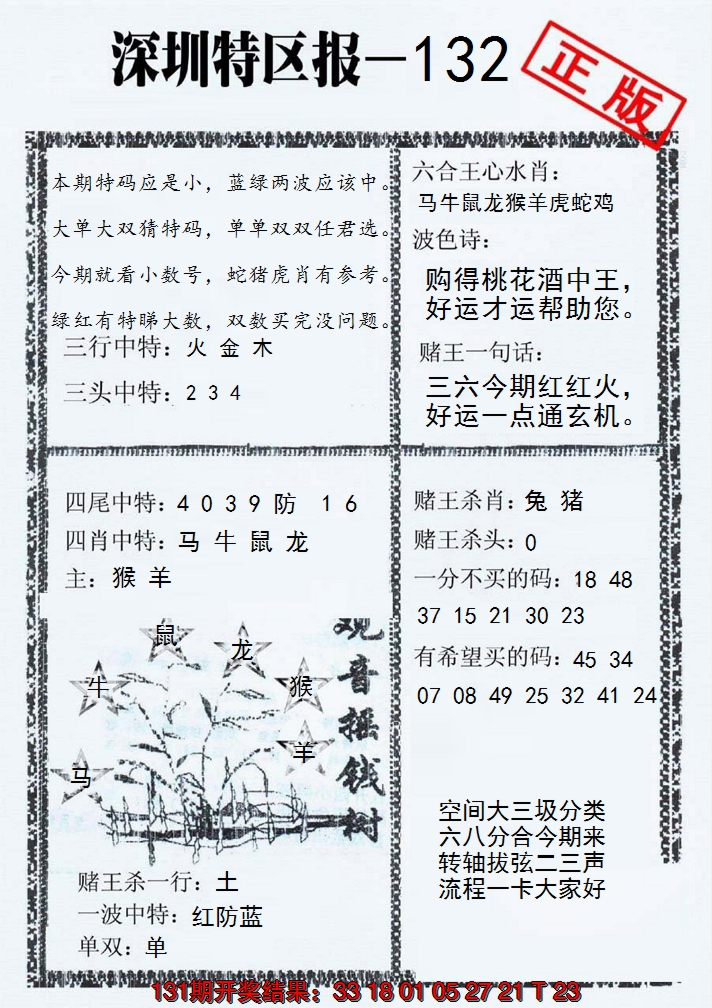 深圳特区报-132
正版
本期特码应是小，蓝绿两波应该中。
大单大双猜特码，单单双双任君选。
今期就看小数号，蛇猪虎肖有参考。
绿红有特睇大数，双数买完没问题。
三行中特：火 金 木
三头中特：2 3 4
六合王心水肖：
马牛鼠龙猴羊虎蛇鸡
波色诗：
购得桃花酒中王，
好运才运帮助您。
赌王一句话：
三六今期红红火，
好运一点通玄机。
四尾中特：4 0 3 9 防 1 6
四肖中特：马 牛 鼠 龙
主：猴 羊
鼠
龙
牛
猴
羊
马
观音摇钱树
赌王杀一行：土
一波中特：红防蓝
单双：单
赌王杀肖：兔 猪
赌王杀头：0
一分不买的码：18 48
37 15 21 30 23
有希望买的码：45 34
07 08 49 25 32 41 24
空间大三圾分类
六八分合今期来
转轴拔弦二三声
流程一卡大家好
131期开奖结果：33 18 01 05 27 21 T 23